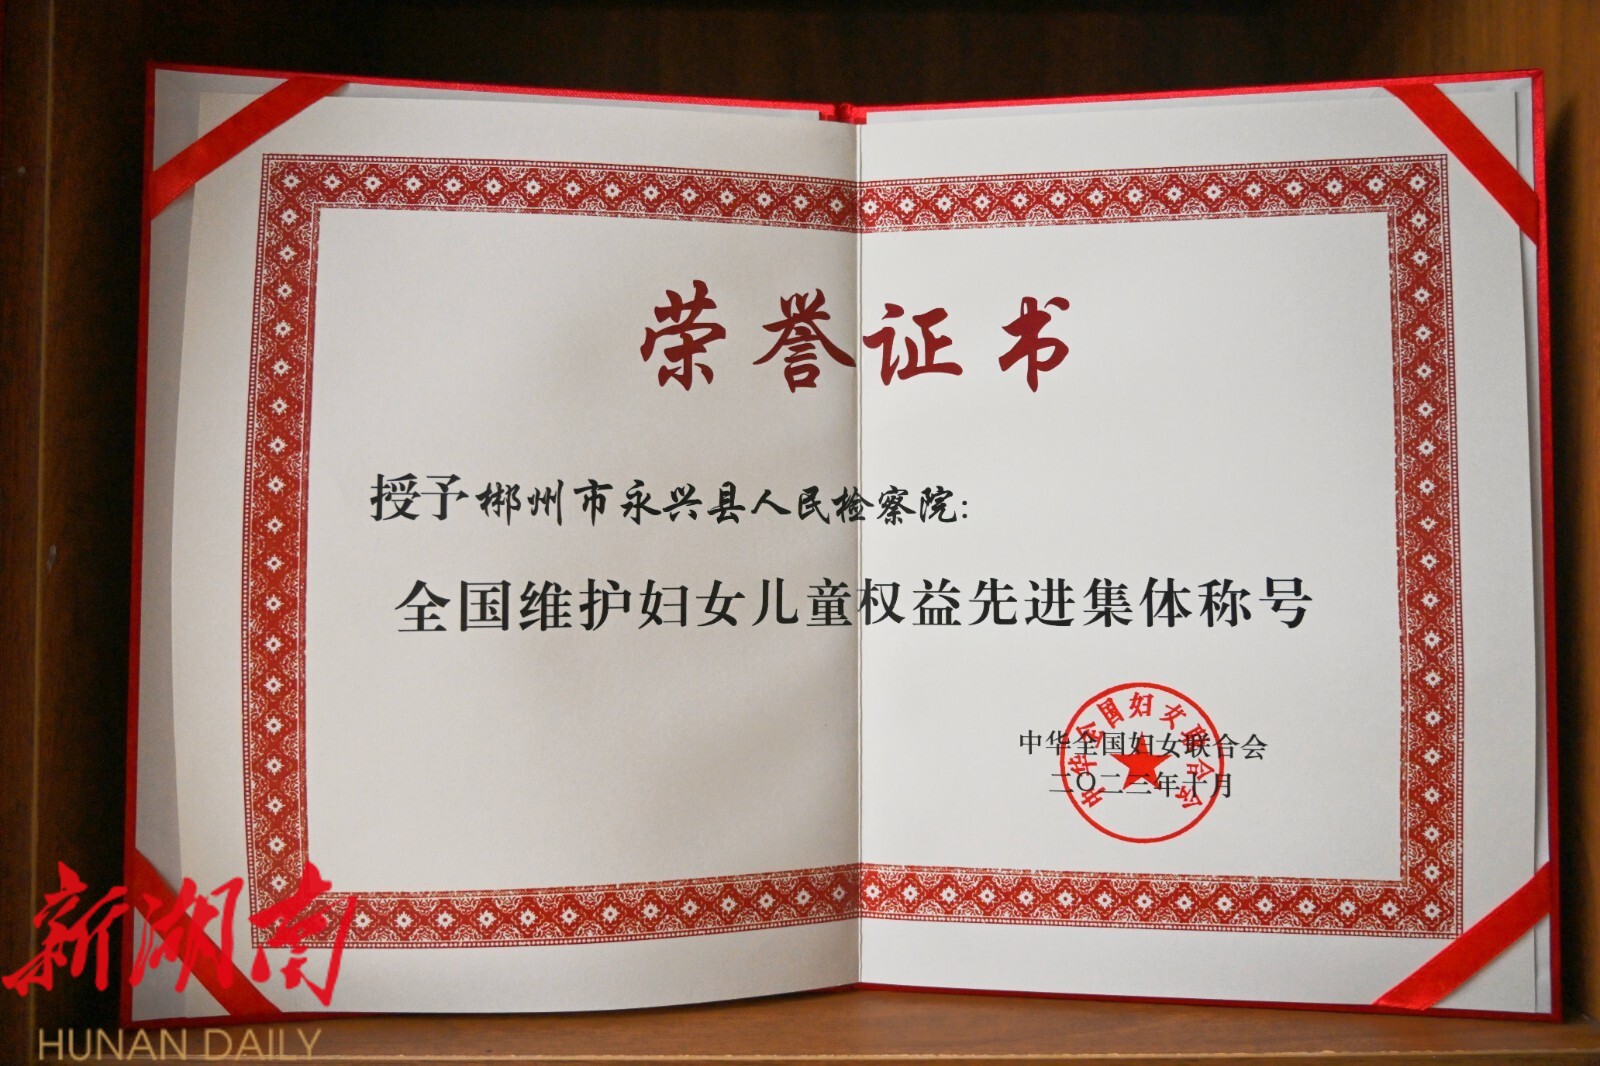 荣誉证书
授予郴州市永兴县人民检察院:
全国维护妇女儿童权益先进集体称号
中华全国妇女联合会
二〇二三年十月
中华全国妇女联合会
新湖南
HUNAN DAILY